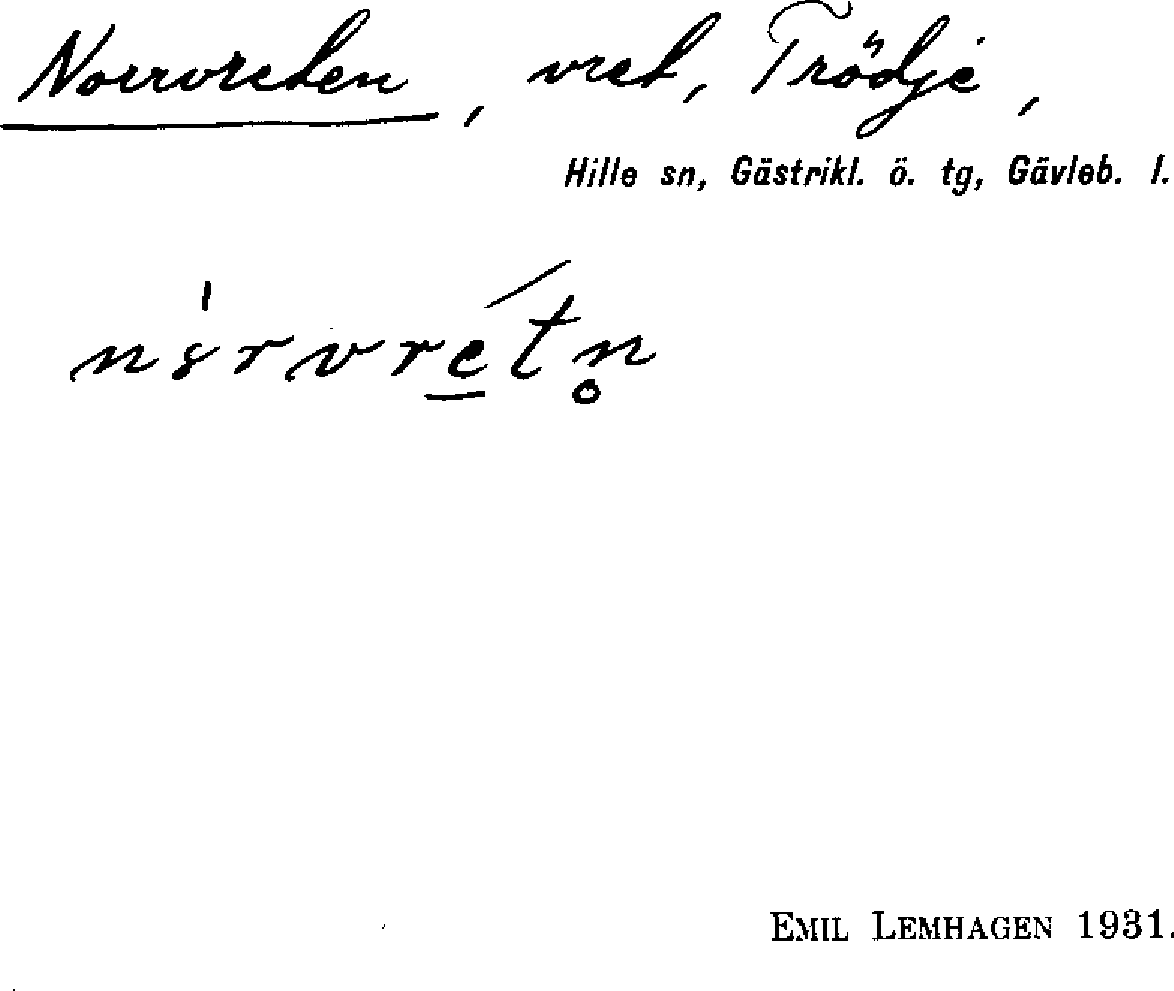 Norrvreten, vret, Trödje,
Hille sn, Gästrikl. ö. tg, Gävleb. l.
EMIL LEMHAGEN 1931.